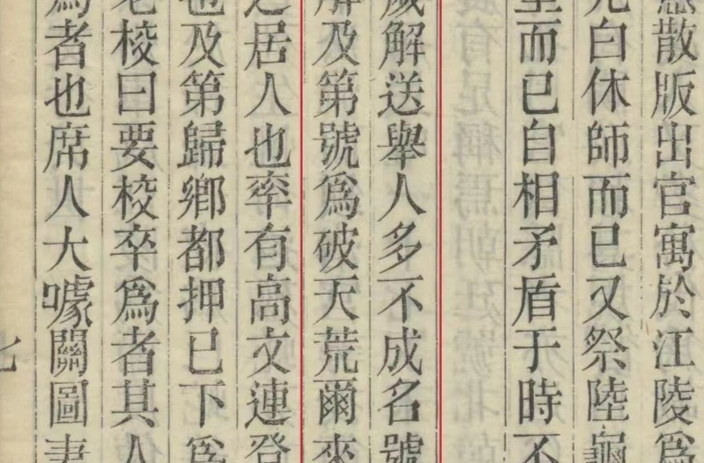 散版出官寓於江陵爲
元白休師而已又祭陸龜
而已自相矛盾于時不
歲解送舉人多不成名號
解及第號爲破天荒爾來
之居人也率有高文連登
也及第歸鄉都押已下爲
老校曰要校卒爲者其人
爲者也席人大噱關圖妻